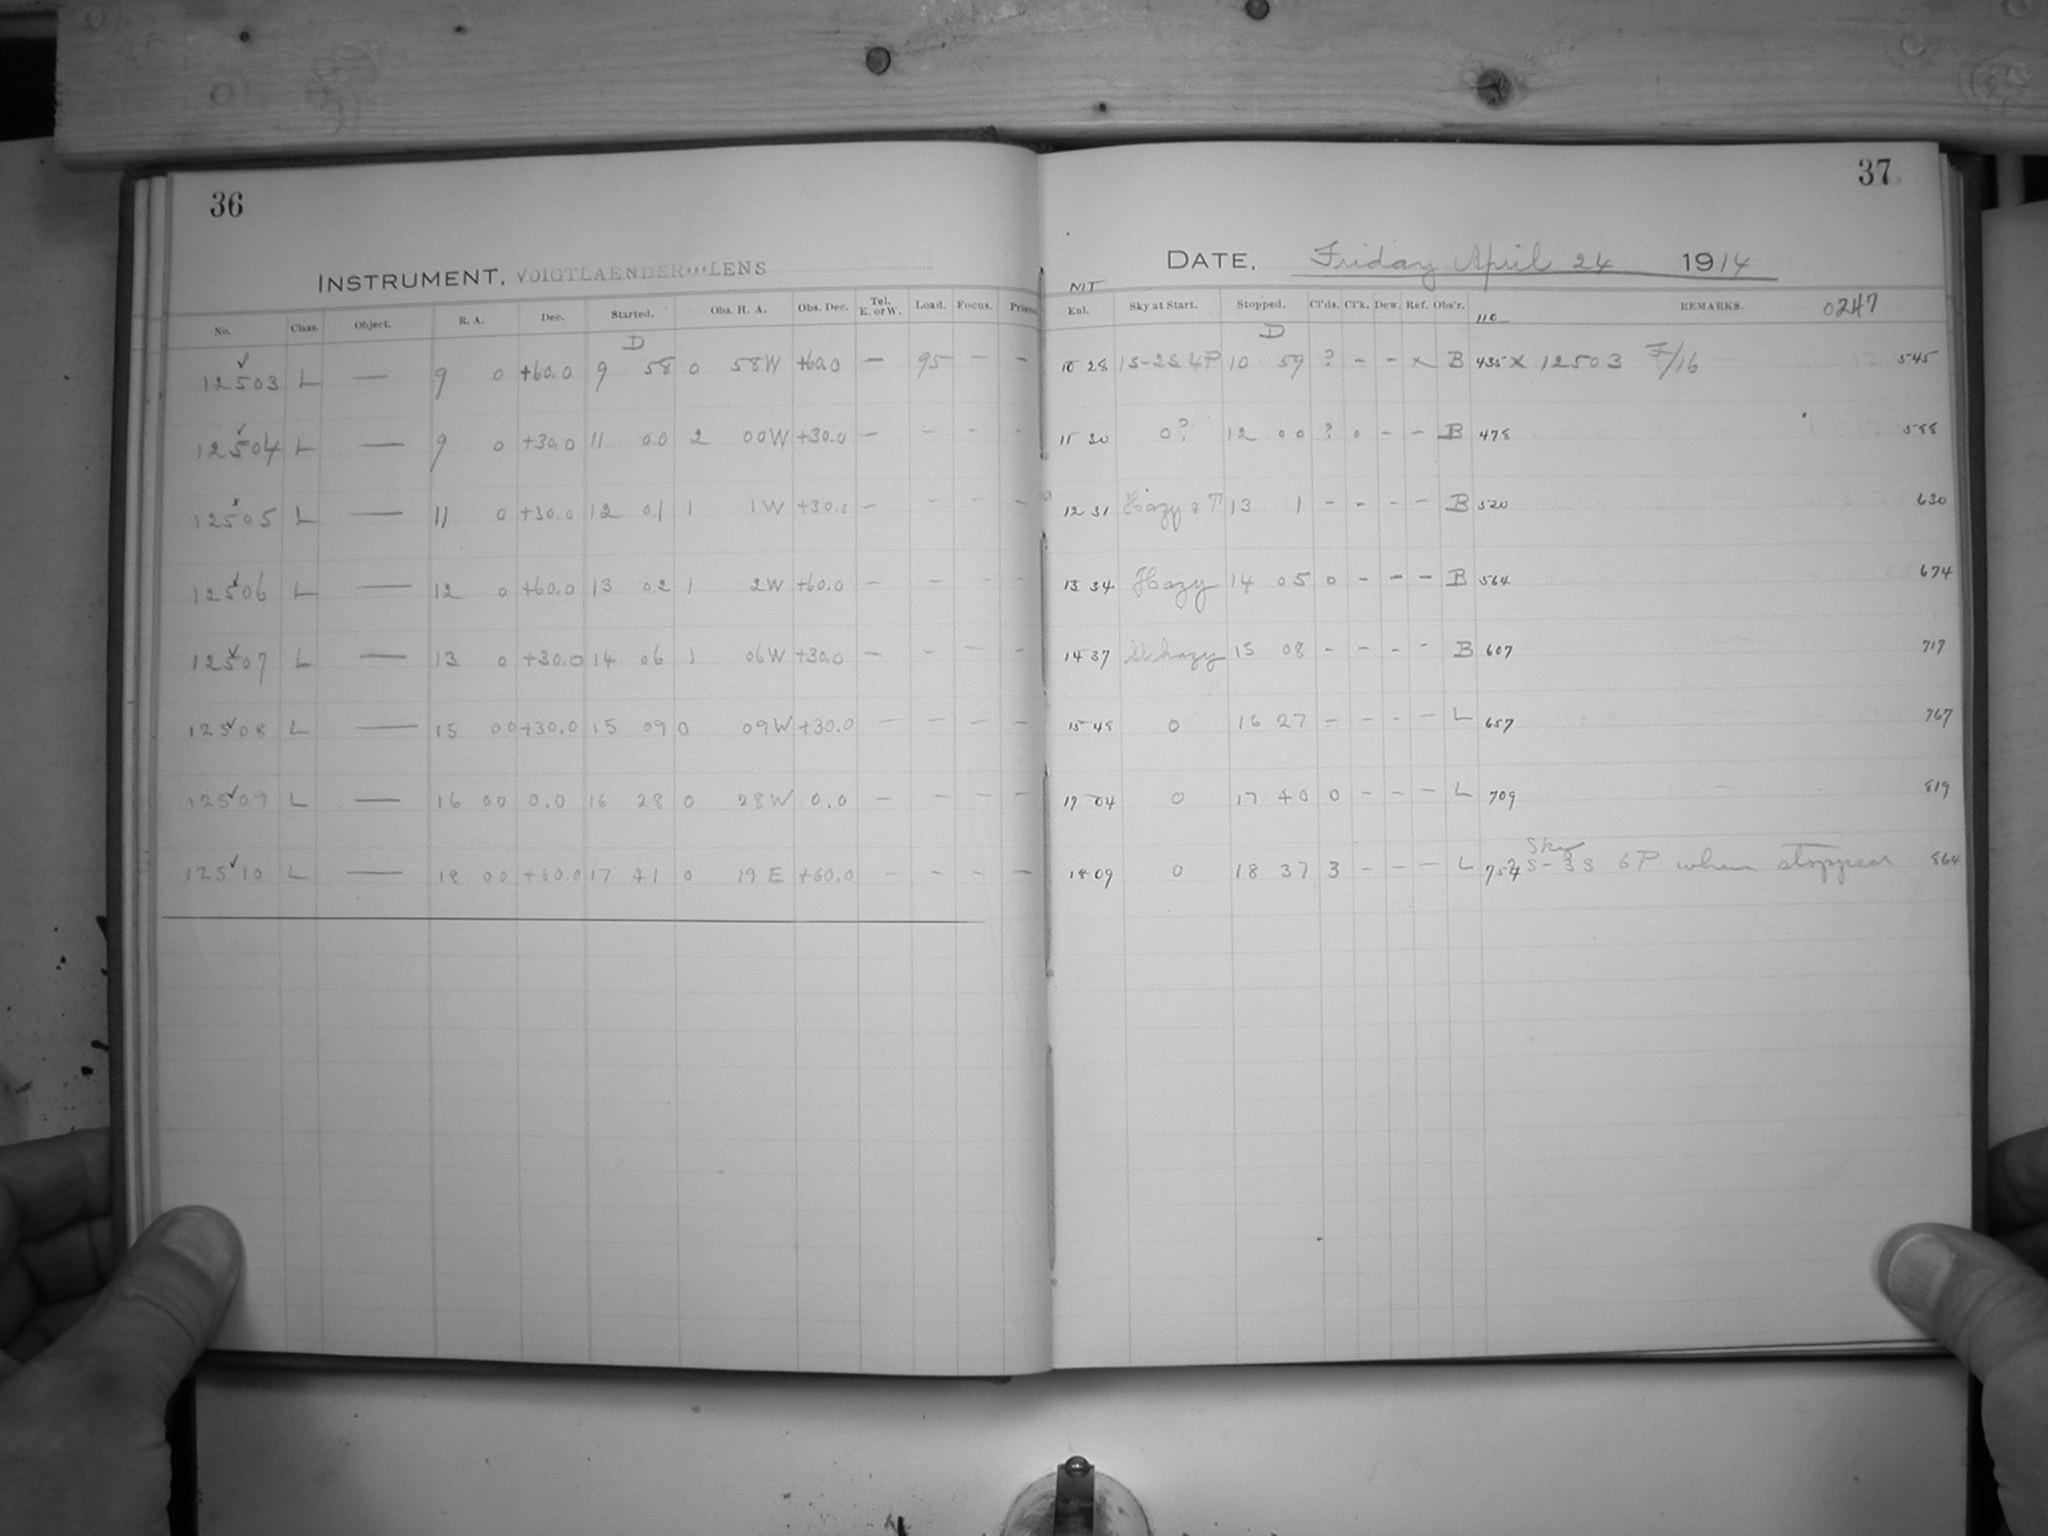 36
INSTRUMENT, VOIGTLAENDER LENS
No. Class. Object. R. A. Dec. Started. Obs. H. A. Obs. Dec. Tel. E. or W. Load. Focus. Prism
D
12503 L — 9 0 +60.0 9 58 0 58W +60.0 — 95 — —
12504 L — 9 0 +30.0 11 00 2 00W +30.0 — - - -
12505 L — 11 0 +30.0 12 01 1 1W +30.0 — - - -
12506 L — 12 0 +60.0 13 02 1 2W +60.0 — - - -
12507 L — 13 0 +30.0 14 06 1 06W +30.0 — - - -
12508 L — 15 00 +30.0 15 09 0 09W +30.0 — - - -
12509 L — 16 00 0.0 16 28 0 28W 0.0 — - - -
12510 L — 18 00 +60.0 17 41 0 19 E +60.0 - - - -
37
DATE, Friday April 24 1914
NIT
Exl. Sky at Start. Stopped. Cl'ds. Cl'k. Dew. Ref. Obs'r. REMARKS. 0247
110
D
10 28 1S-2S 4P 10 59 ? - - x B 435 x 12503 F/16 545
11 30 0? 12 00 ? 0 - - B 478 588
12 31 Hazy 13 1 - - - - B 520 630
13 34 Hazy 14 05 0 - - - B 564 674
14 37 Sl hazy 15 08 - - - - B 607 717
15 48 0 16 27 - - - - L 657 767
17 04 0 17 40 0 - - - L 709 819
Sky
18 09 0 18 37 3 - - - L 754 S-3S 6P when stopped 864